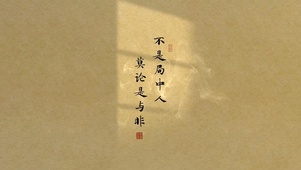 不是局中人
莫论是与非